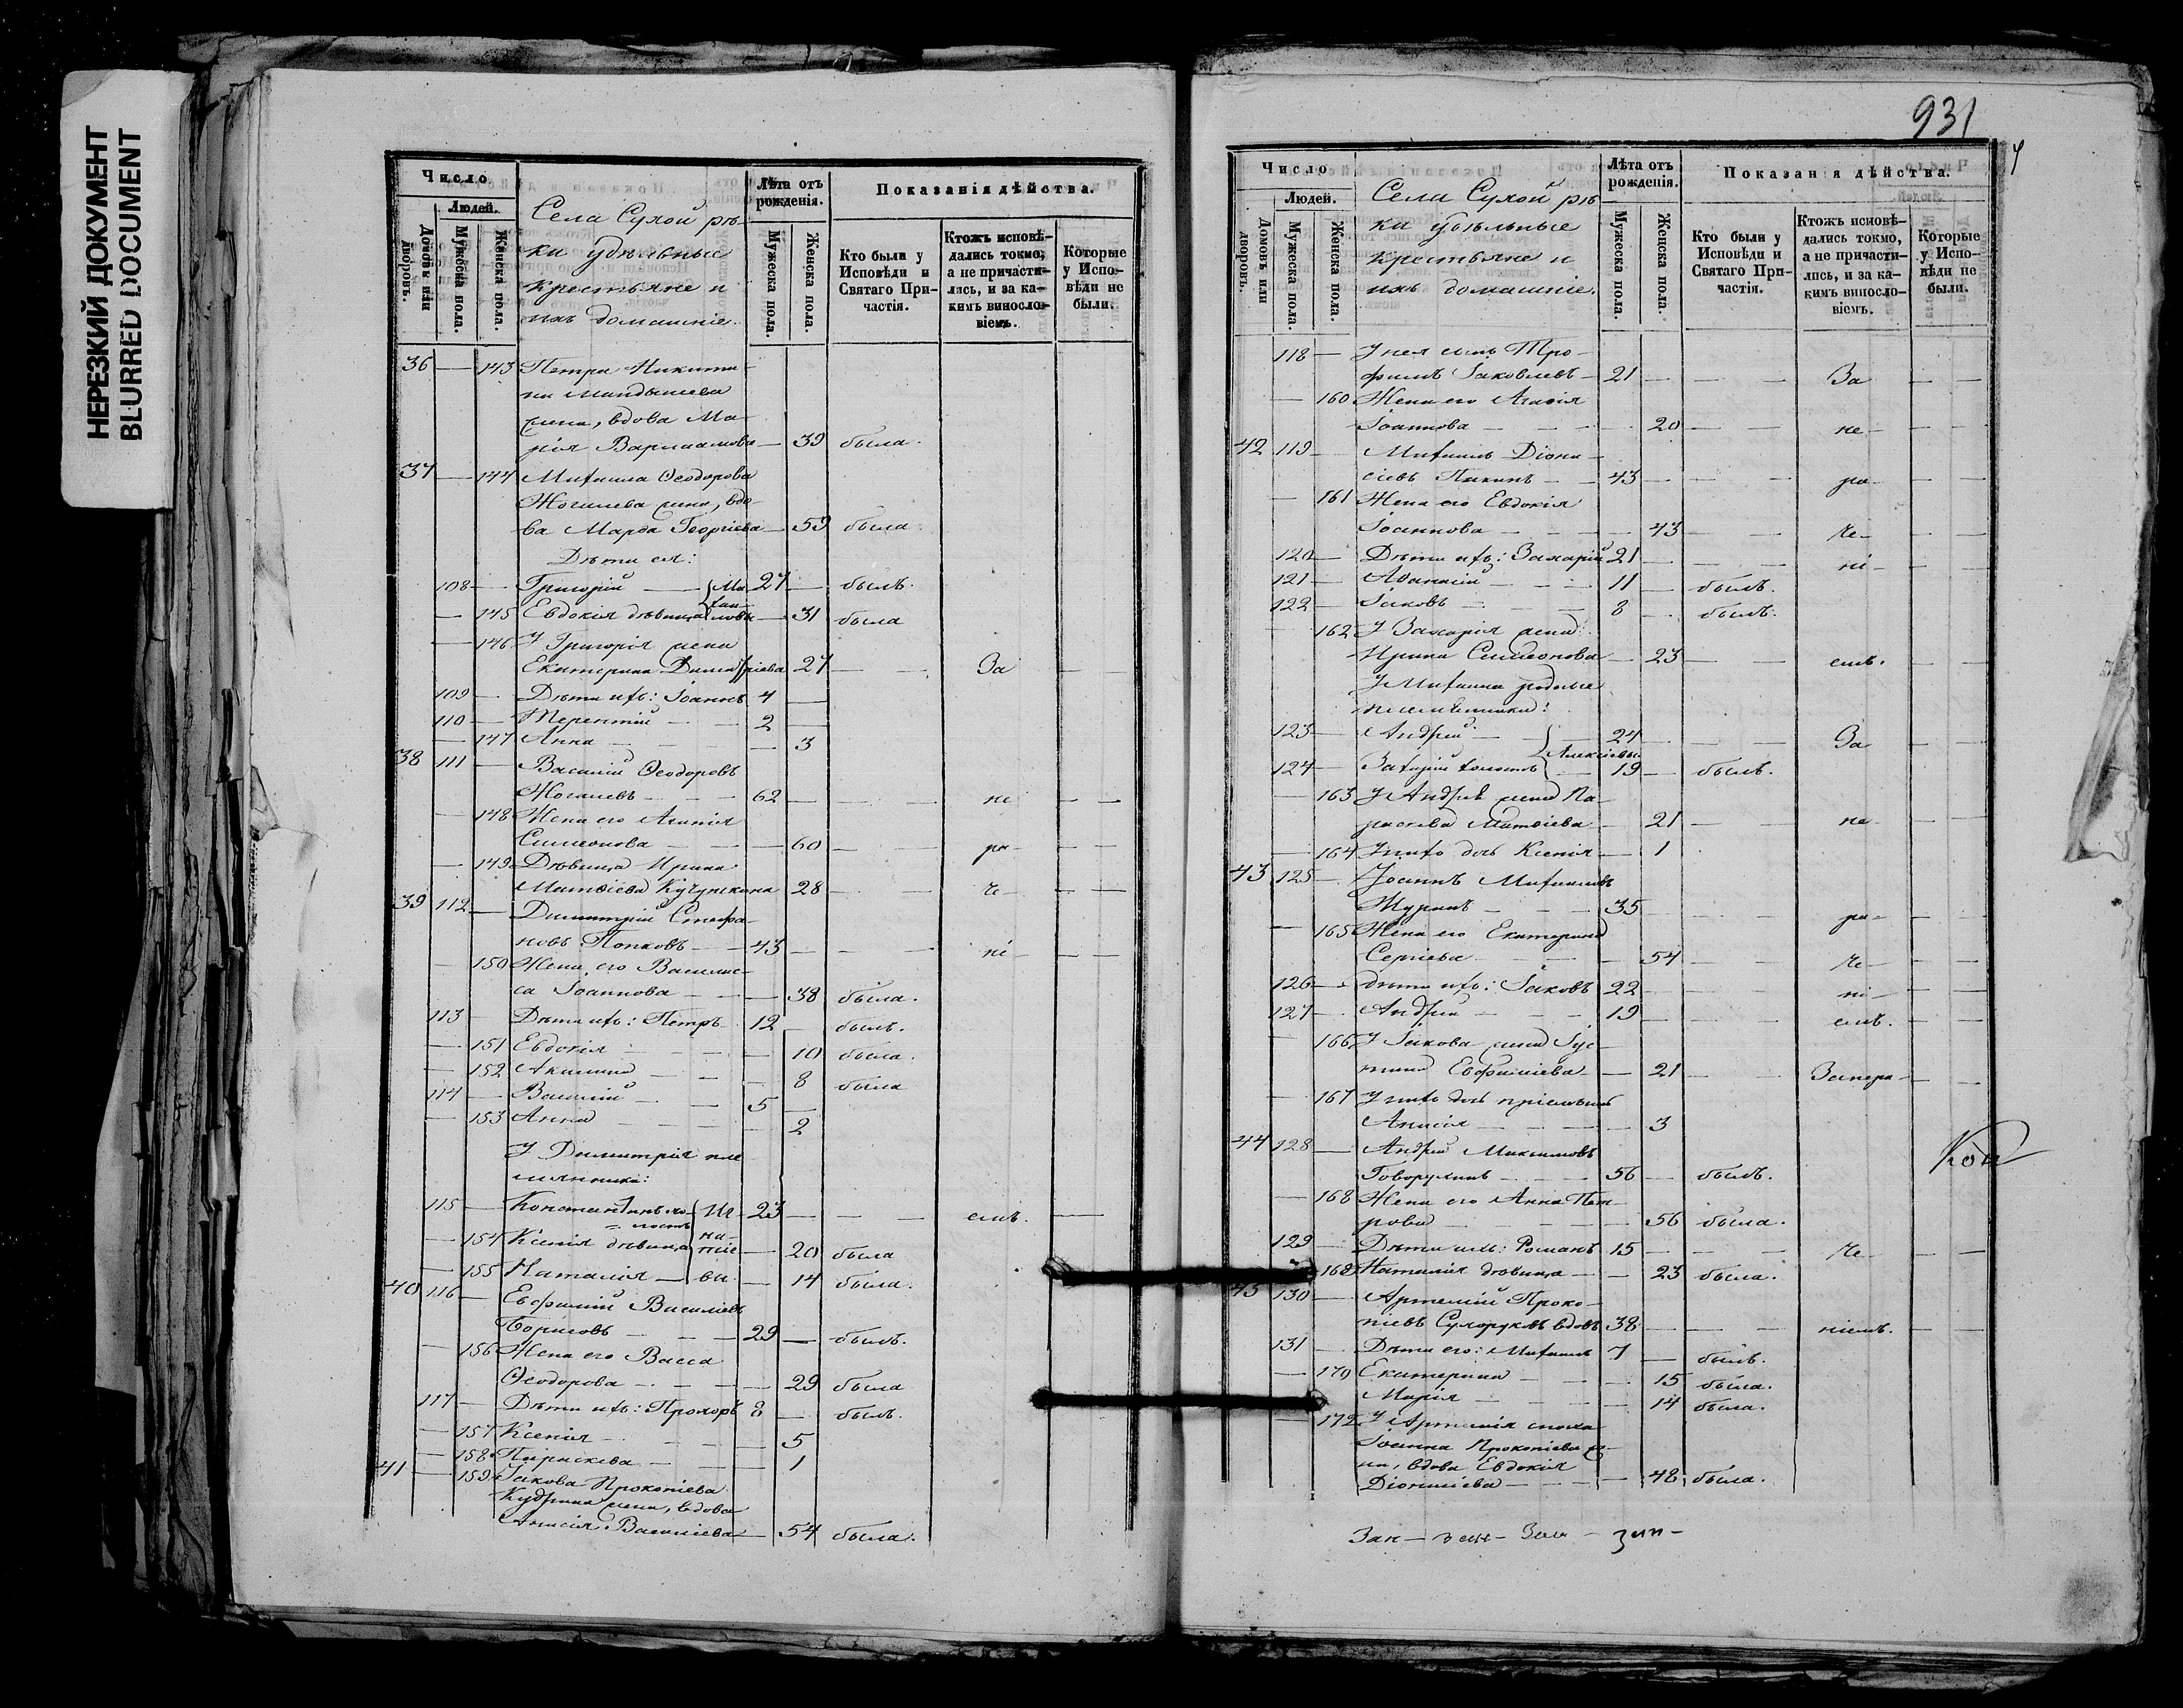 НЕРЕЗКИЙ ДОКУМЕНТ
BLURRED DOCUMENT
Число
Людей.
Домовъ или дворовъ.
Мужеска пола.
Женска пола.
Села Сухой рѣ-
ки удѣльные
крестьяне и
ихъ домашніе.
Лѣта отъ рожденія.
Мужеска пола.
Женска пола.
Показанія дѣйства.
Кто были у Исповѣди и Святаго При-частія.
Ктожъ исповѣ-дались токмо, а не причасти-лись, и за ка-кимъ винословіемъ.
Которые у Испо-вѣди не были.
36 — 143 Петра Никити-
на
жена, вдова Ма-
рія Варлаамова — 39 была.
37 — 144 Михаила Ѳеодорова
Жогалева жена, вдо-
ва Марѳа Георгіева — 59 была.
Дѣти ея:
108 — Григорій — Ми- 27 — былъ.
— 145 Евдокія дѣвица хаи-ловы — 31 была
— 146 У Григорія жена
Екатерина Димитріева 27 — — За — —
109 — Дѣти ихъ: Іоаннъ 4 —
110 — Терентій — — 2 —
— 147 Анна — — — 3
38 111 — Василій Ѳеодоровъ
Жогалевъ — — — 62 — — — не — —
— 148 Жена его Агапія
Симеонова — — — 60 — — ра — —
— 149 Дѣвица Ирина
Матѳіева 28 — — че — —
39 112 — Димитрій Стефа-
новъ Попковъ — — 43 — — — ні — —
— 150 Жена его Василис-
са Іоаннова — — — 38 была.
113 — Дѣти ихъ: Петръ 12 — былъ.
— 151 Евдокія — — — 10 была.
— 152 Акилина — — — 8 была
114 — Василій — — 5 —
— 153 Анна — — — 2
У Димитрія пле-
мянники:
115 — Константинъ хо-лостъ Иг- 23 — — — емъ. —
— 154 Ксенія дѣвица на-тіе- — 20 была
— 155 Наталія — вы. — 14 была.
40 116 — Евфимій Василіевъ
Борисовъ — — — 29 — былъ.
— 156 Жена его Васса
Ѳеодорова — — — 29 была
117 — Дѣти ихъ: Прохоръ 8 — былъ.
— 157 Ксенія — — — 5
— 158 Параскева — — — 1
41 — 159 Іакова Прокопіева
Кудрина жена, вдова
Анисія Василіева — 54 была.
931
Число
Людей.
Домовъ или дворовъ.
Мужеска пола.
Женска пола.
Села Сухой рѣ-
ки удѣльные
крестьяне и
ихъ домашніе.
Лѣта отъ рожденія.
Мужеска пола.
Женска пола.
Показанія дѣйства.
Кто были у Исповѣди и Святаго При-частія.
Ктожъ исповѣ-дались токмо, а не причасти-лись, и за ка-кимъ винословіемъ.
Которые у Испо-вѣди не были.
118 — У нея сынъ Тро-
фимъ Іаковлевъ — 21 — — — За — —
— 160 Жена его Агафія
Іоаннова — — — 20 — — не — —
42 119 — Михаилъ Діони-
сіевъ — — 43 — — — ра — —
— 161 Жена его Евдокія
Іоаннова — — — 43 — — че — —
120 — Дѣти ихъ: Захарій 21 — — — ні — —
121 — Аѳанасій — — 11 — былъ.
122 — Іаковъ — — — 8 — былъ.
162 У Захарія жена
Ирина Симеонова — 23 — — емъ. — —
У Михаила родные
племянники:
123 — Андрей — — 24 — — — За — —
Алексіевы
124 — Захарій холостъ — 19 — былъ.
— 163 У Андрея жена Па-
раскева Матѳіева — 21 — — не — —
— 164 У нихъ дочь Ксенія — 1
43 125 — Іоаннъ Михаиловъ
— — — 35 — — — ра — —
— 165 Жена его Екатерина
Сергіева — — — 54 — — че — —
126 — Дѣти ихъ: Іаковъ 22 — — — ні — —
127 — Андрей — — — 19 — — — емъ. — —
166 У Іакова жена Іус-
тина Евфиміева — 21 — — Занера- — —
— 167 У нихъ дочь пріемышъ
Анисія — — — 3
44 128 — Андрей Максимовъ
Говорухинъ — — — 56 — былъ.
— 168 Жена его Анна Пет-
рова — — — 56 была.
129 — Дѣти ихъ: Романъ 15 — — — че — —
168 Наталія дѣвица — — 23 была.
45 130 — Артемій Проко-
піевъ Сухоруковъ вдовъ 38 — — — ніемъ. — —
131 — Дѣти его: Михаилъ 7 — былъ.
— 170 Екатерина — — — 15 была.
Марія — — — 14 была.
— 172 У Артемія сноха
Іоанна Прокопіева же-
на, вдова Евдокія
Діонисіева — — — 48 была.